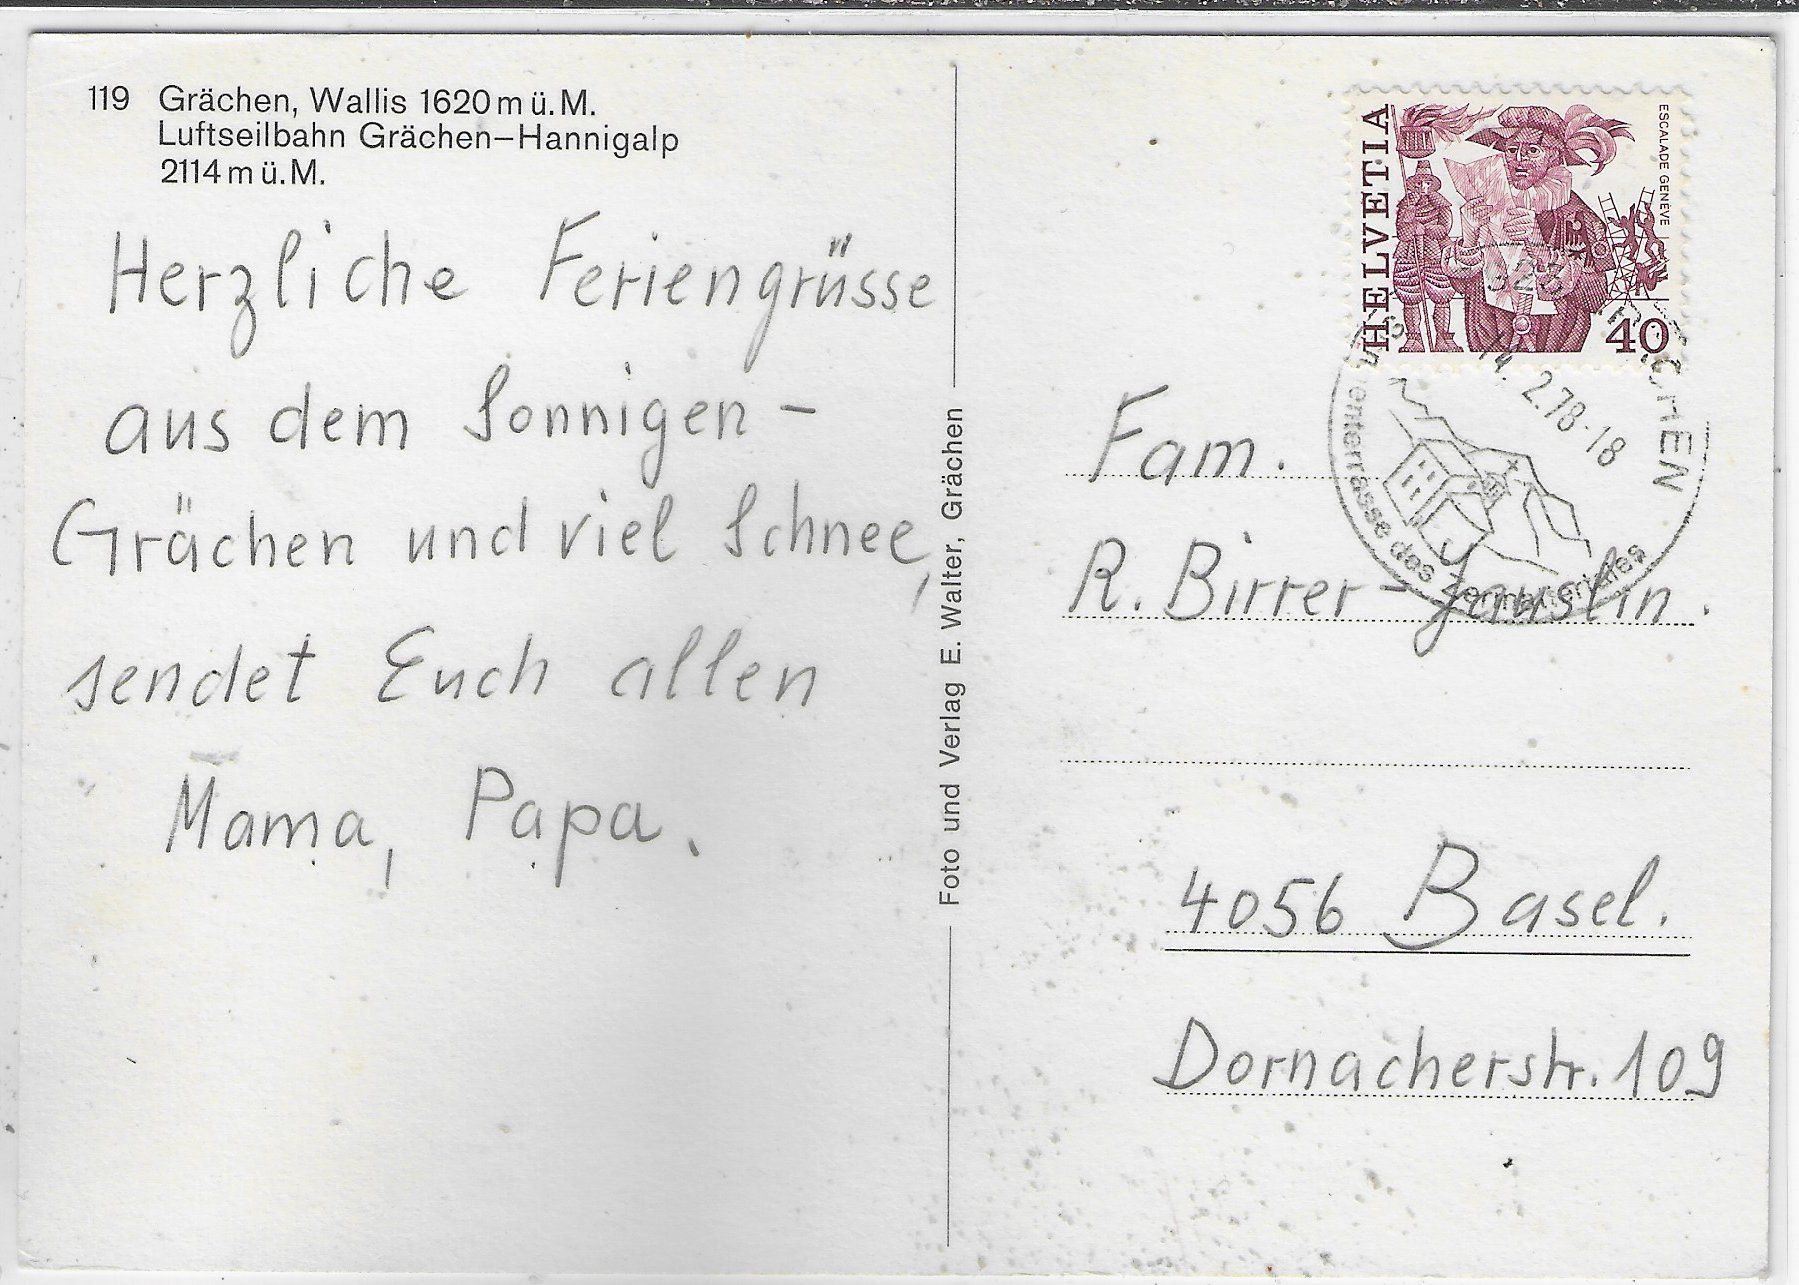 119 Grächen, Wallis 1620 m ü. M.
Luftseilbahn Grächen–Hannigalp
2114 m ü. M.
Herzliche Feriengrüsse
aus dem Sonnigen -
Grächen und viel Schnee,
sendet Euch allen
Mama, Papa.
Foto und Verlag E. Walter, Grächen
HELVETIA
ESCALADE GENÈVE
40
14. 2.78-18
des Zermattertales
Fam.
R. Birrer - Jauslin.
4056 Basel.
Dornacherstr. 109